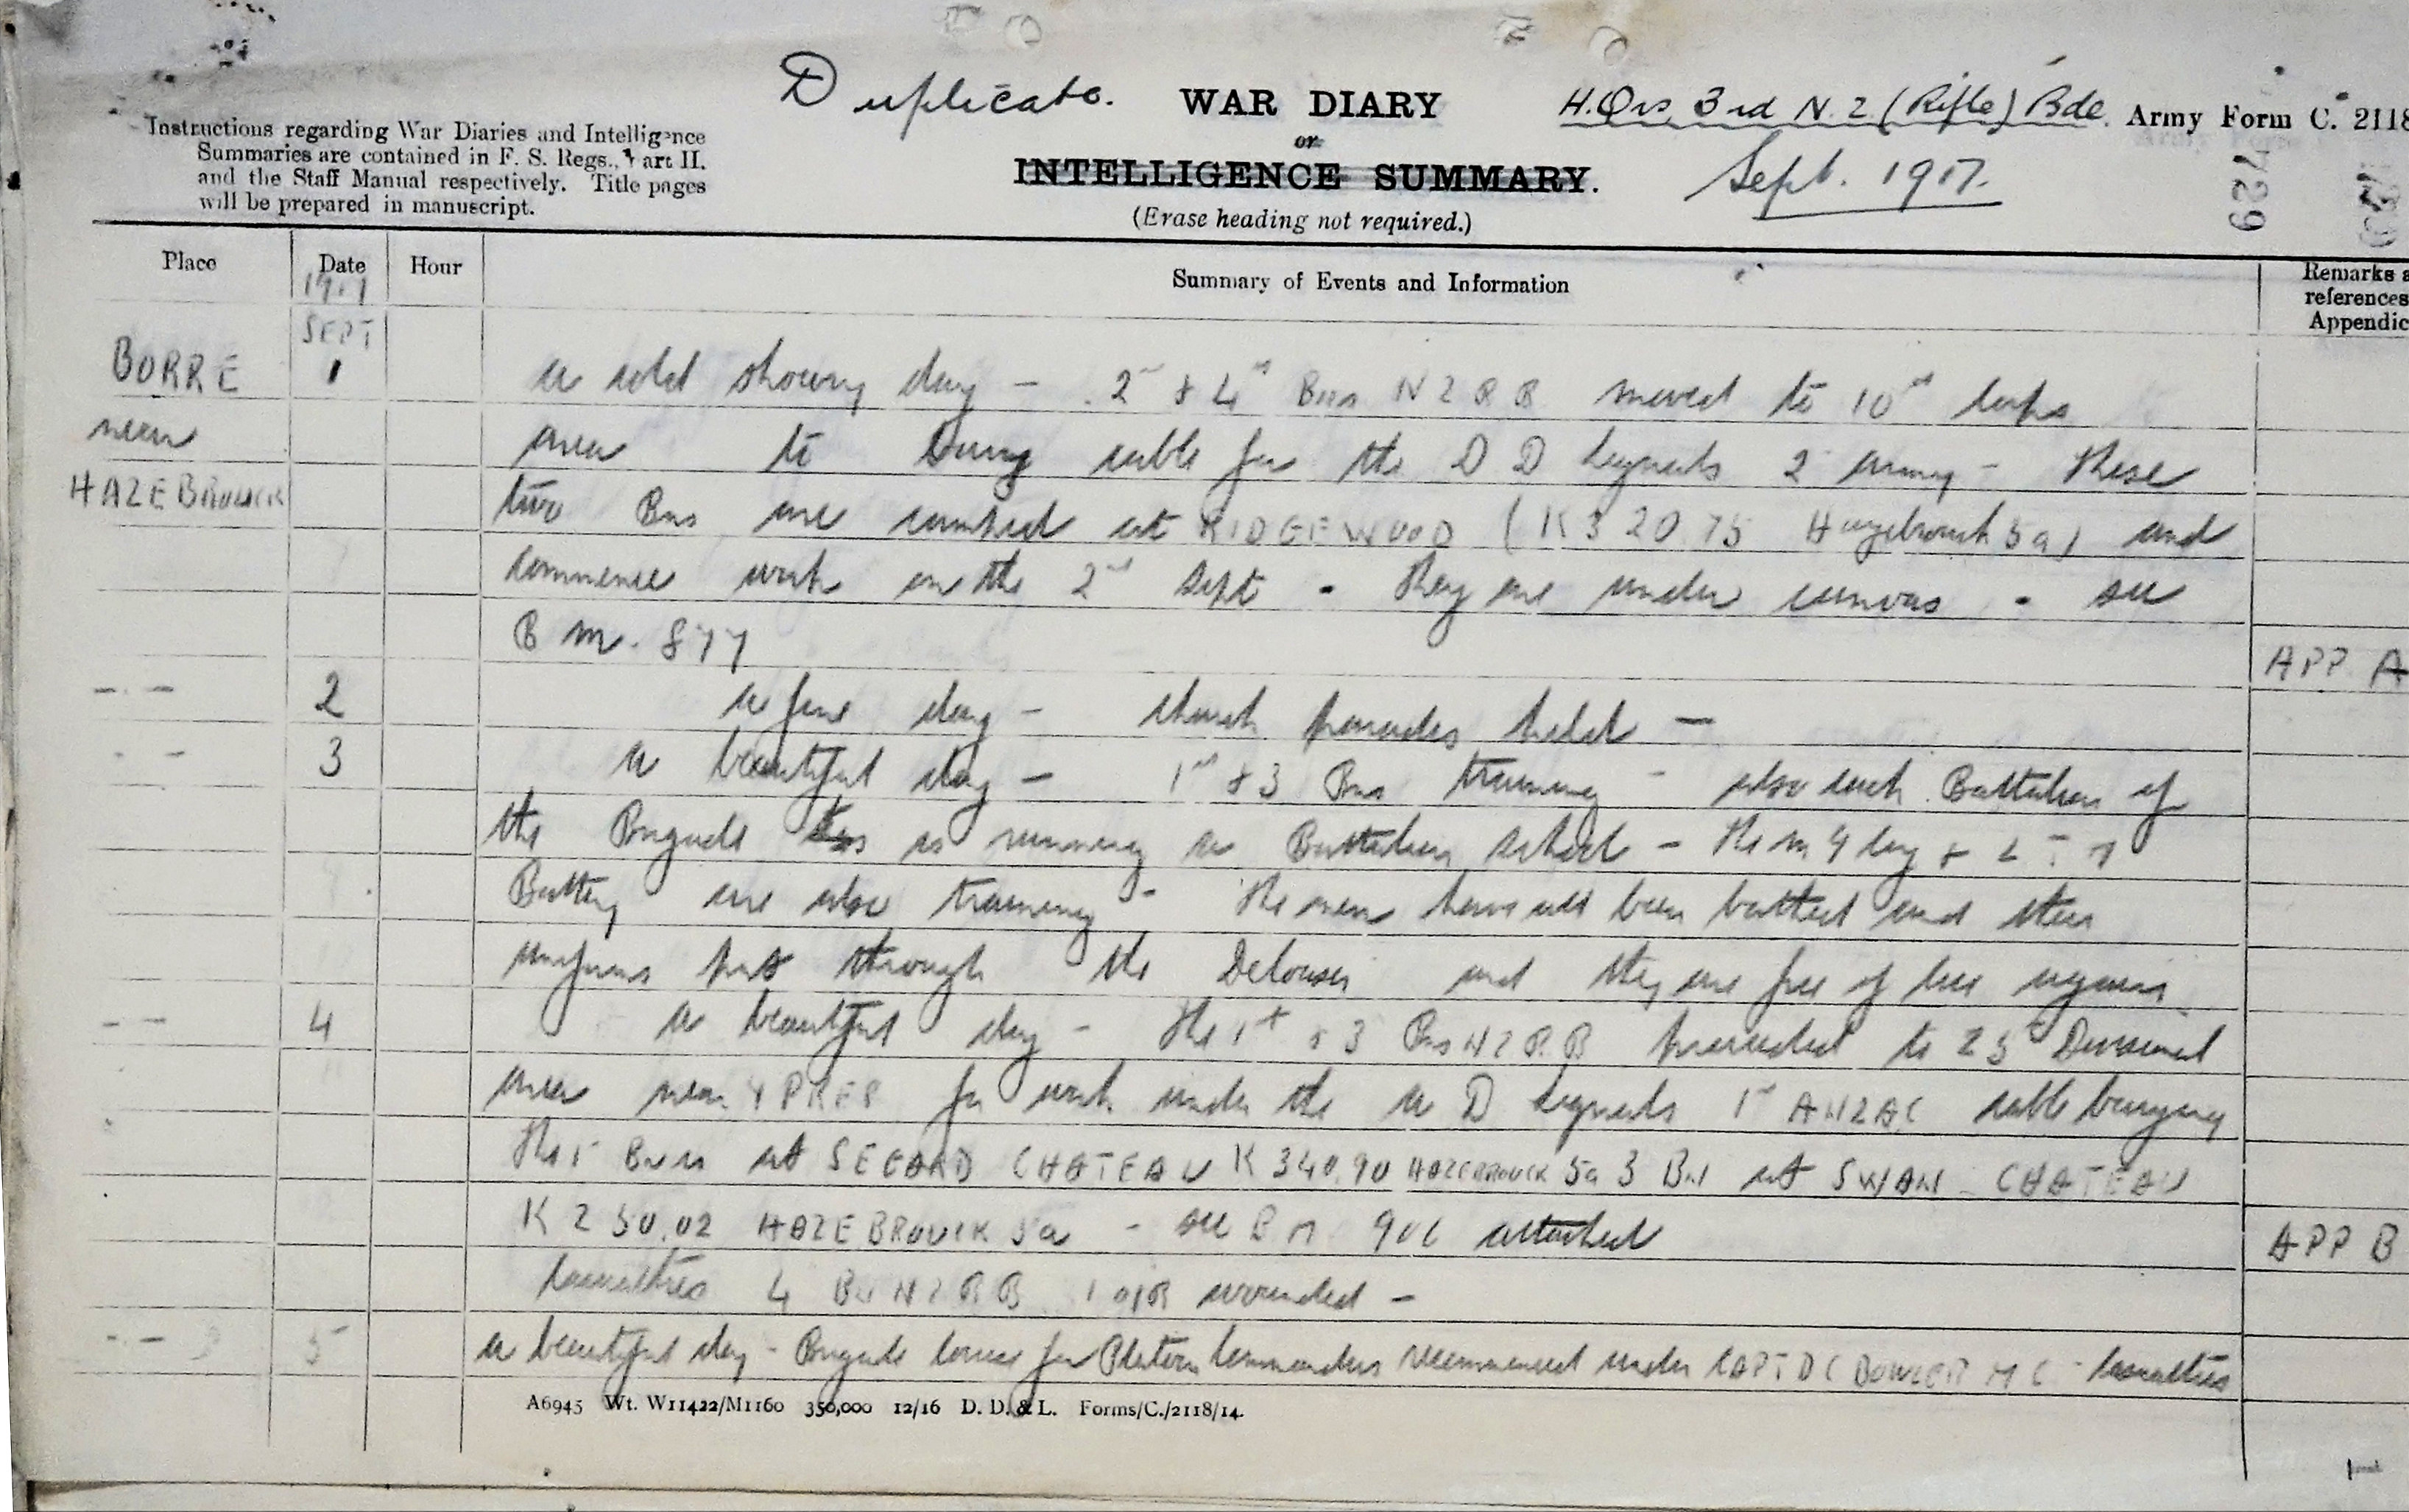 Duplicate. WAR DIARY H.Qrs. 3rd N.Z (Rifle) Bde. Army Form C. 2118
or
INTELLIGENCE SUMMARY. Sept. 1917.
(Erase heading not required.)
Instructions regarding War Diaries and Intelligence
Summaries are contained in F. S. Regs., Part II.
and the Staff Manual respectively. Title pages
will be prepared in manuscript.
729
Place Date Hour Summary of Events and Information Remarks a
references
Appendic
1917
SEPT
BORRE 1 a cold showery day - 2nd & 4th Bns N Z R B moved to 10th Corps
near area to bury cable for the D D Signals 2 Army - These
HAZEBROUCK two Bns are camped at RIDGEWOOD (K 3 20 75 Hazebrouck 5a) and
commence work on the 2nd Sept - They are under canvas - see
B M. 877 APP A
- - 2 a fine day - church parades held -
- - 3 a beautiful day - 1st & 3 Bns training - also each Battalion of
the Brigade is running a Battalion school - The M G Coy & L T M
Battery are also training - The men have all been bathed and their
uniforms put through the Delouser and they are free of lice again
- - 4 a beautiful day - The 1st & 3 Bns N Z R B proceeded to 25th Divisional
area near YPRES for work under the A D Signals 1st ANZAC cable burying
The 1st Bn is at SEGARD CHATEAU K 3 40.90 HAZEBROUCK 5a 3 Bn at SWAN CHATEAU
K 2 50.02 HAZEBROUCK 5a - see B M 906 attached APP B
Casualties 4 Bn N Z R B 1 O/R wounded -
- - 5 a beautiful day - Brigade Course for Platoon Commanders recommenced under CAPT D C BOWLER M C - Casualties
A6945 Wt. W11422/M1160 350,000 12/16 D. D. & L. Forms/C./2118/14.